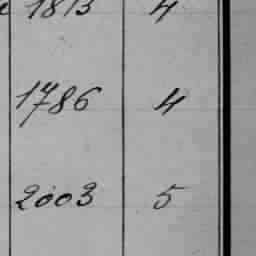 1813 4
1786 4
2003 5